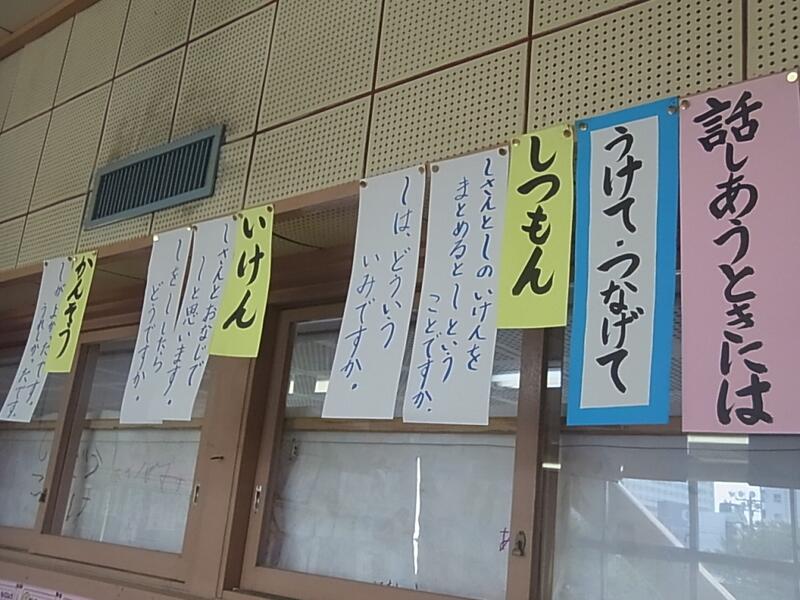 話しあうときには
うけて・つなげて
しつもん
しさんとしのいけんを
まとめるとしという
ことですか.
しは、どういう
いみですか。
いけん
しさんとおなじで
しと思います。
しをししたら
どうですか。
かんそう
しがよかったです。
うれしかったです。